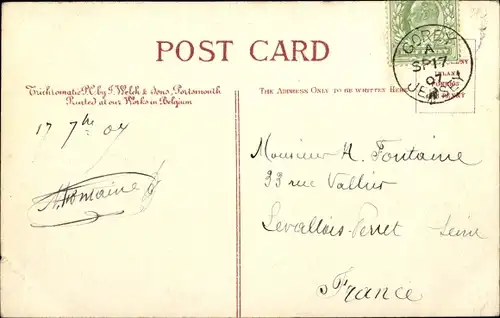 POST CARD
GOREY
A
SP 17
07
JERSEY
Trichromatic P.C. by J. Welch & Sons, Portsmouth
Printed at our Works in Belgium
THE ADDRESS ONLY TO BE WRITTEN HERE
17 7bre 07
H. Fontaine
Monsieur H. Fontaine
33 rue Vallier
Levallois-Perret Seine
France